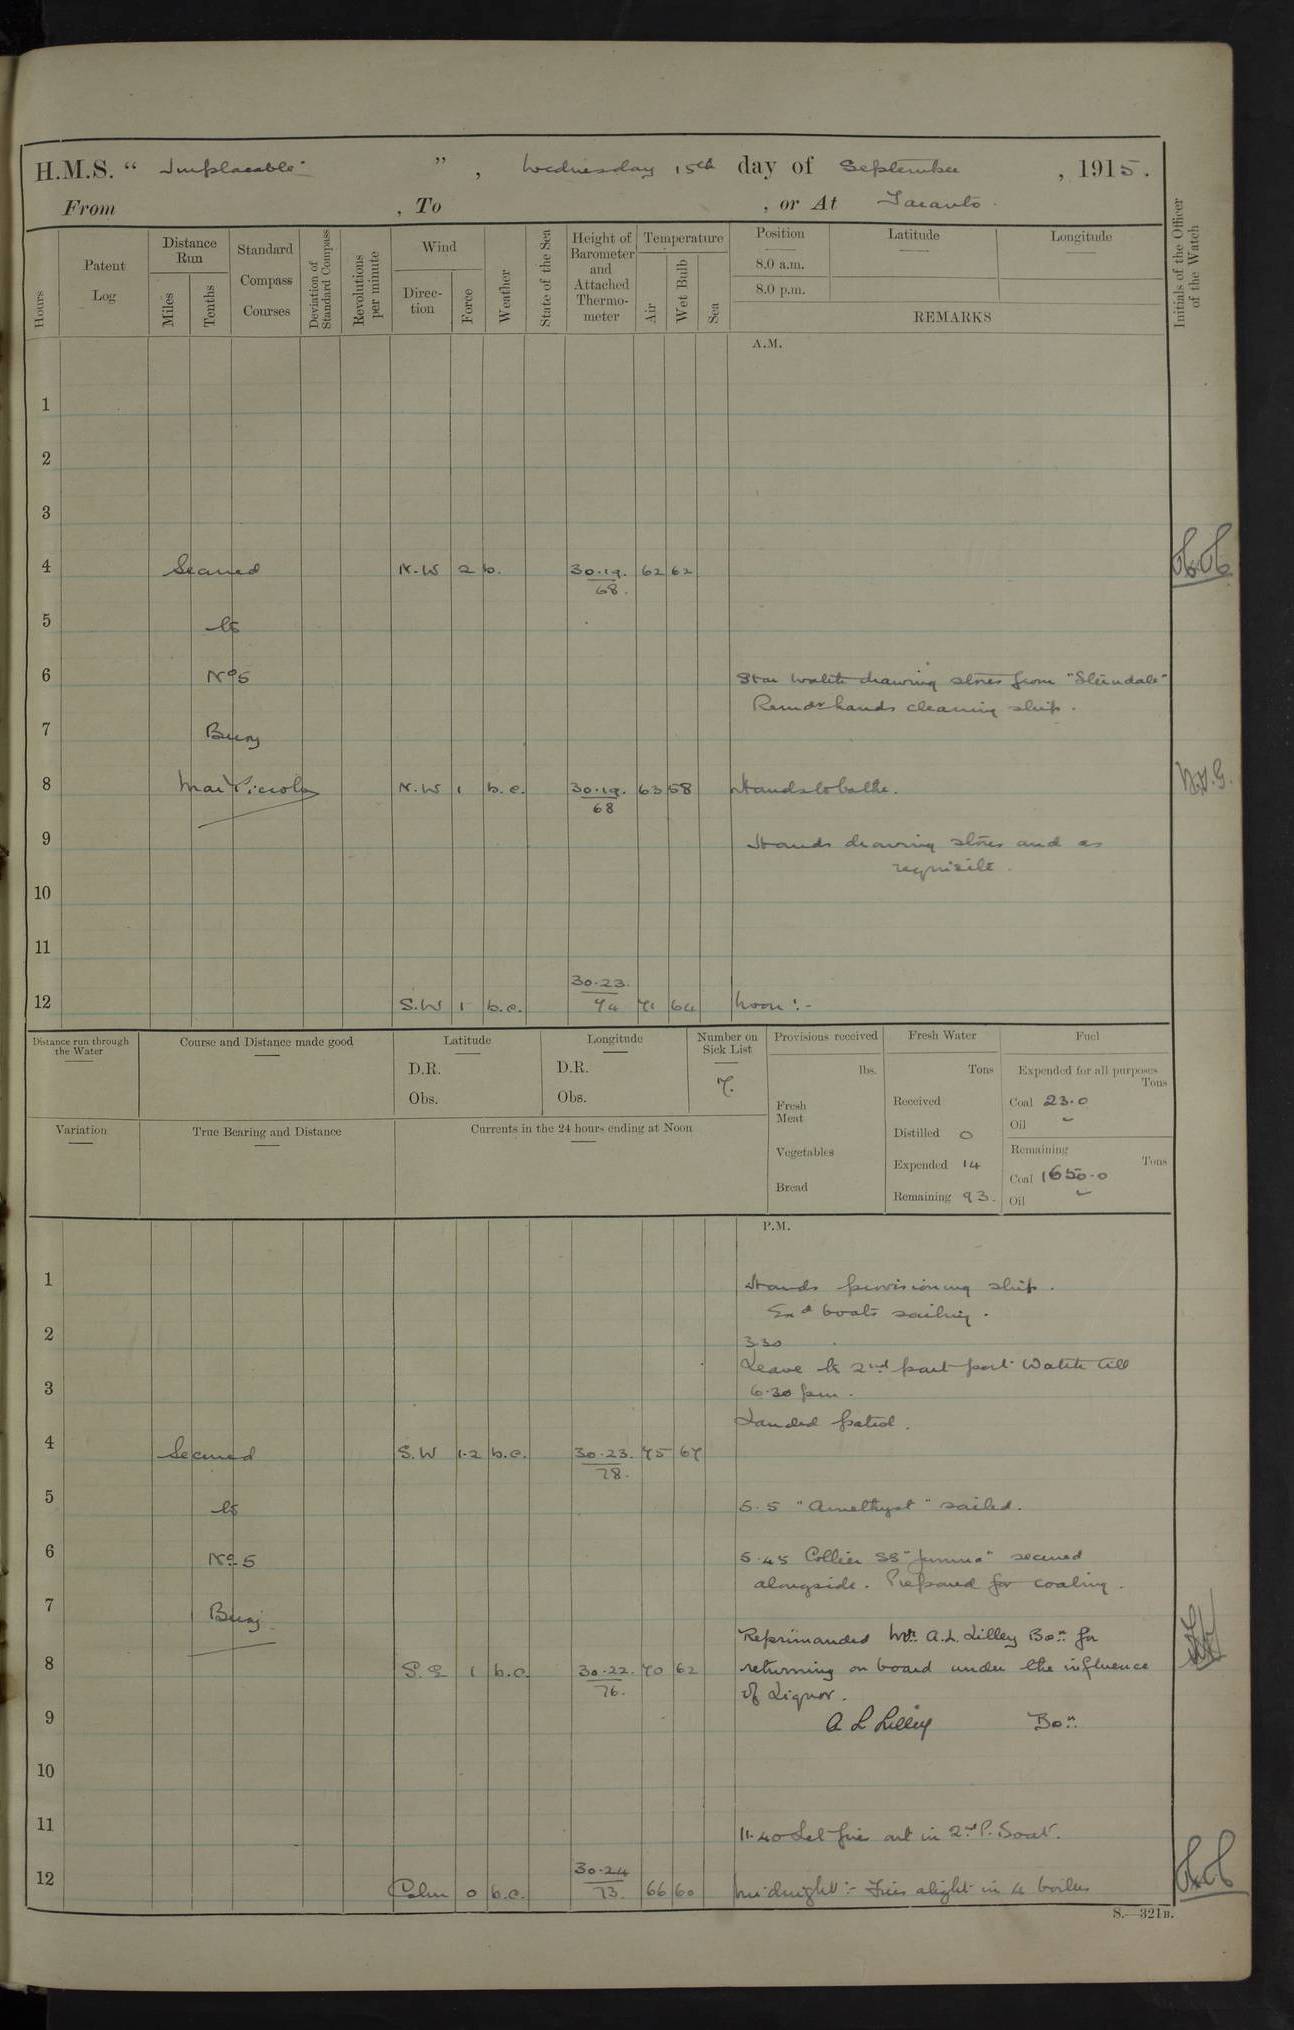 H.M.S. “ Implacable ” , Wednesday 15th day of September , 1915.
From , To , or At Taranto.
Hours
Patent Log
Distance Run
Miles
Tenths
Standard Compass Courses
Deviation of Standard Compass
Revolutions per minute
Wind
Direction
Force
Weather
State of the Sea
Height of Barometer and Attached Thermometer
Temperature
Air
Wet Bulb
Sea
Position
8.0 a.m.
8.0 p.m.
Latitude
Longitude
REMARKS
Initials of the Officer of the Watch
A.M.
1
2
3
4 Secured N.W 2 b. 30.19. 62 62
68.
5 to
6 No 5 Star Watch drawing stores from "
Remdr hands cleaning ship.
7 Buoy
8 Mar Piccolo N.W 1 b.c. 30.19. 63 58 Hands to bathe.
68
9 Hands drawing stores and as
requisite.
10
11
30.23.
12 S.W 1 b.c. 74 71 64 Noon :-
Distance run through the Water
Course and Distance made good
Latitude
D.R.
Obs.
Longitude
D.R.
Obs.
Number on Sick List
7.
Provisions received
lbs.
Fresh Meat
Vegetables
Bread
Fresh Water
Tons
Received
Distilled 0
Expended 14
Remaining 93.
Fuel
Expended for all purposes
Tons
Coal 23.0
Oil -
Remaining
Tons
Coal 1650.0
Oil -
Variation
True Bearing and Distance
Currents in the 24 hours ending at Noon
P.M.
1 Hands provisioning ship.
Exd boats sailing.
2 3.30
Leave to 2nd part port Watch till
3 6.30 pm.
Landed patrol.
4 Secured S.W 1.2 b.c. 30.23. 75 67
78.
5 to 5.5 "Amethyst" sailed.
6 No 5 5.45 Collier SS " secured
alongside. Prepared for coaling.
7 Buoy.
Reprimanded Mr. A.L. Lilley Bosn for
8 S.E 1 b.c. 30.22. 70 62 returning on board under the influence
76. of Liquor.
9 A L Lilley Bosn
10
11 11.40 Let fire out in 2nd P. Boat.
30.24
12 Calm 0 b.c. 73. 66 60 Midnight :- Fires alight in 4 boilers
S.—321B.